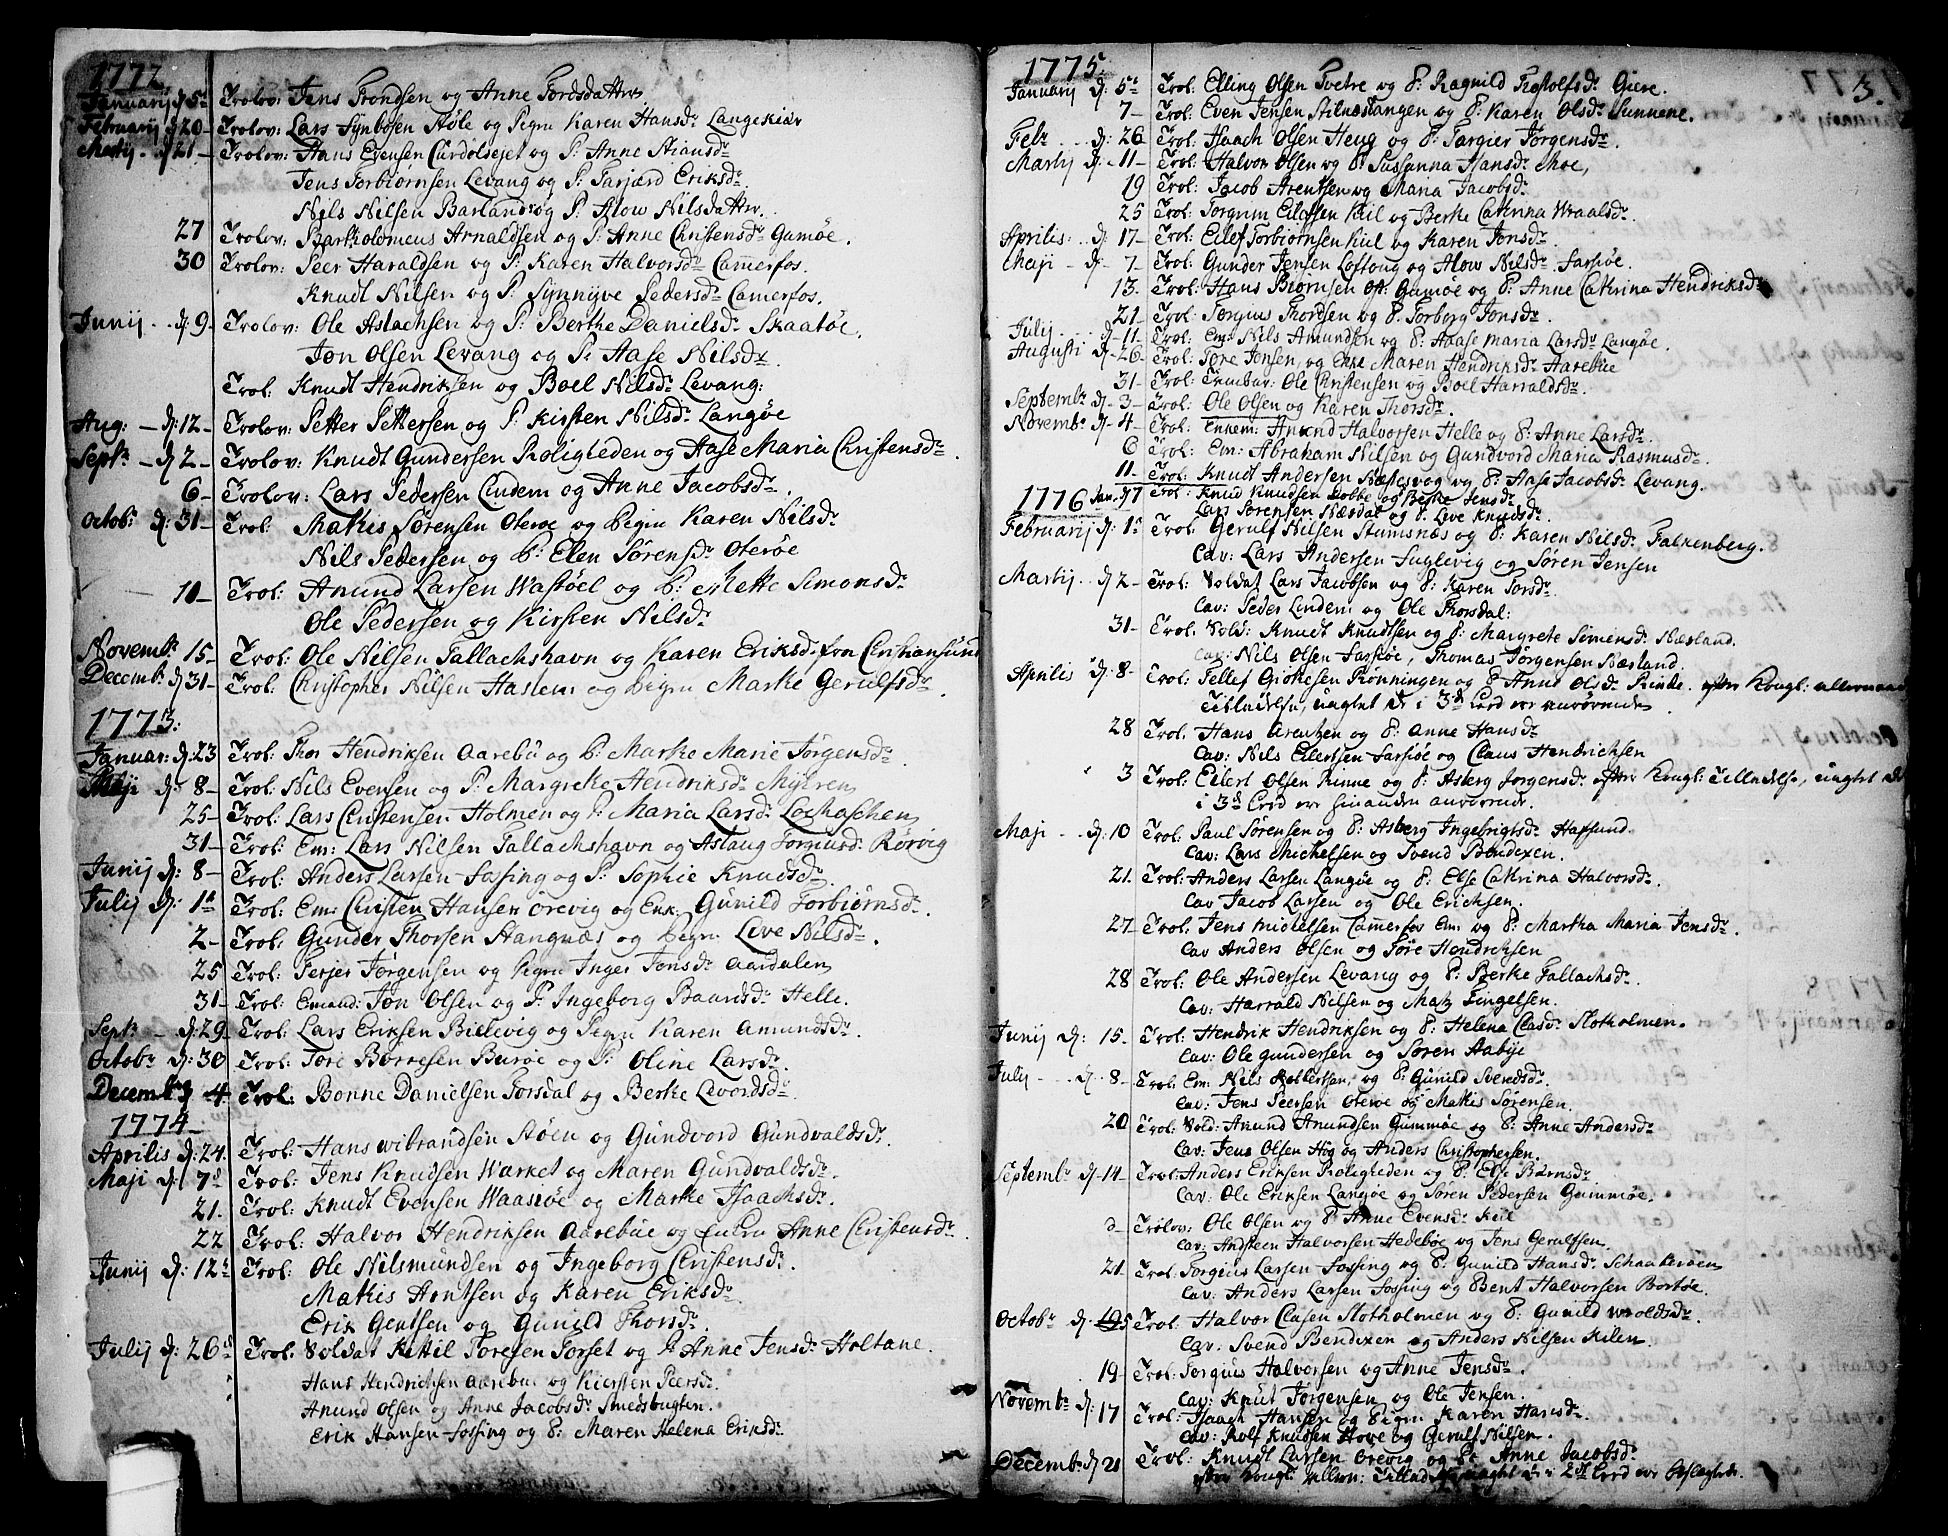 1772.
Januarij d 5te Trolov: Jens Trondsen og Anne Tordsdatter
Februarij d 20 – Trolov: Lars Synbøsen Støle og Pigen Karen Hansdr Langekiær
Martij d 21 – Trolov: Hans Evensen og P: Anne
Jens Torbiørnsen Levang og P: Tarjærd Eriksdr
Nils Nilsen Barland og P: Alow Nilsdatter.
27 Trolov: Bartholomeus Arnaldsen og P: Anne Christensdr Gumøe.
30 Trolov: Peer Haraldsen og P: Karen Halvorsdr Camerfos.
Knudt Nilsen og P: Synnyve Pedersdr Camerfos.
Junij d: 9 – Trolov: Ole Aslachsen og P: Berthe Danielsdr Skaatøe.
Jon Olsen Levang og P: Aase Nilsdr
Trol: Knudt Hendriksen og Boel Nilsdr Levang:
Aug: – d: 12 – Trolov: Petter Pettersen og P: Kirsten Nilsdr Langøe
Septr – d 2 – Trolov: Knudt Gundersen Roligheden og Aase Maria Christensdr.
6 – Trolov: Lars Pedersen Lindem og Anne Jacobsdr.
Octobr: d: 31 – Trol: Mathis Sørensen Oterøe og Pigen Karen Nilsdr
Nils Pedersen og P: Elen Sørensdr Oterøe
10 – Trol: Anund Larsen Wastøel og P: Mette Simonsdr
Ole Pedersen og Kirsten Nilsdr
Novembr 15 – Trol: Ole Nilsen Tallachshavn og Karen Eriksd. fra Christiansund
Decembr d 31 – Trol: Christopher Nilsen Haslem og Pigen Marthe Gerulfsdr.
1773:
Januar: d: 23 Trol: Thor Hendriksen Aarebu og P: Marthe Marie Jørgensdr.
Maji d: 8 – Trol: Nils Evensen og P: Margrethe Hendriksdr Myhren
25 – Trol: Lars Christensen Holmen og P: Maria Larsdr Lochaschen
31 – Trol: Em: Lars Nilsen Tallachshavn og Aslaug Torgiusd: Rørvig
Junij d: 8 – Trol: Anders Larsen Fossing og P: Sophie Knudsdr.
Julij d: 1te Trol: Em: Christen Hansen Ørevig og Enk: Gunild Torbiørnsdr.
2 – Trol: Gunder Thorsen Stangnæs og Pigen Live Nilsdr.
25 Trol: Terjer Jørgensen og Pigen Inger Jensdr Aardalen
31 – Trol: Emand: Jon Olsen og P. Ingeborg Baardsdr Helle.
Septr – d: 29 – Trol: Lars Eriksen Bielevig og Pigen Karen Amundsdr.
Octobr d: 30 Trol: Tore Børresen Burøe og P: Oline Larsdr.
Decembr 4 – Trol: Bonne Danielsen Torsdal og Berthe Levordsdr.
1774 –
Aprilis d: 24. Trol: Hans Wibrandsen Støen og Gundvord Gundvaldsdr.
Maji d: 7de Trol: Jens Knudsen Warket og Maren Gundvaldsdr.
21. Trol: Knudt Evensen Waasøe og Marthe Isaachsdr.
22 Trol: Halvor Hendriksen Aarebue og Anne Christensdr.
Junij d: 12te Trol: Ole Nilsmundsen og Ingeborg Christensdr.
Mathis Arntsen og Karen Eriksdr.
Erik Gentsen og Gunild Thorsdr.
Julij d: 26de Trol: Soldat Kettil Toresen Torset og P: Anne Jensdr Holtane.
Hans Hendrichsen Aarebue og Kiersten Peersdr.
Anund Olsen og Anne Jacobsdr Smedsbugten.
Erik Hansen Fossing og P: Maren Helena Eriksdr.
3.
1775.
Januarij d: 5te Trol: Elling Olsen Tvetre og P: Ragnild Giere.
7 – Trol: Even Jensen Stilnæstangen og P: Karen Olsdr Sunnene.
Febr d: 26 Trol: Isaach Olsen Heug og P: Targier Jørgensdr.
Martij d: 11 – Trol: Halvor Olsen og P: Sussanna Hansdr Moe,
19 Trol: Jacob Arentsen og Maria Jacobsdr
25 Trol: Torgrim Eilefsen Kiil og Berthe Cathrina Wraalsdr.
Aprilis: d: 17 – Trol: Eilef Torbiørnsen Kiil og Karen Jonsdr.
Maji – d – 7 – Trol: Gunder Jensen Loftoug og Alow Nilsdr Farsiøe.
13. Trol: Hans Biørnsen Gumøe og P: Anne Cathrina Hendriksdr
21. Trol: Torgius Thordsen og P: Torborg Jonsdr.
Julij d – 11 – Trol: Em: Nils Amundsen og P: Aase Maria Larsdr Langøe.
Augusti d – 26 – Trol: Tore Jensen, og Enke Maren Hendriksdr Aarebue
31 – Trol: Ole Christensen og Boel Harraldsdr.
Septembr d – 3 – Trol: Ole Olsen og Karen Thorsdr.
Novembr d – 4 – Trol: Enkem: Anund Halvorsen Helle og P: Anne Larsdr.
6 Trol: Em: Abraham Nilsen og Gundvord Maria Rasmusdr.
11 – Trol: Knudt Andersen Næslevog og P: Aase Jacobsdr Levang.
1776 Jan: 17 Trol: Knud Knudsen Dobbe og Berthe Jensdr
Lars Sørensen Næsdal og P: Live Knudsdr.
Februarij d: 1te Trol: Gerulf Nilsen Stumsnæs og P: Karen Nilsdr Falkenberg.
Cav: Lars Andersen Fuglevig og Søren Jensen
Martij d – 2 – Trol: Soldat Lars Jacobsen og P: Karen Torsdr.
Cav: Peder Lindem og Ole Thorsdal:
31 – Trol. Sold: Knudt Knudtsen og P: Margrete Simensdr Næsland.
Cav: Nils Olsen Farsiøe, Thomas Jørgensen Næsland.
Aprilis d: 8 – Trol: Tellef Giøthesen Rønningen og P Anne Olsdr Rinde. efter Kongl: allernaad
Tilladelse, uagtet de i 3de Leed ere anrørende.
28 Trol: Hans Arentzen og P: Anne Hansdr
Cav: Nils Eilertsen Farsiøe og Claus Hendrichsen
3 Trol: Eilert Olsen Rinne og P: Asberg Jørgensdr efter Kongl: Tilladelse, uagtet de
i 3de Leed ere hinanden anrørende.
Maji – d: 10 Trol: Paul Sørensen og P: Asberg Ingebrigtsdr Hafsund.
Cav: Lars Michelsen og Svend Bendixen.
21. Trol: Anders Larsen Langøe og P: Else Cathrina Halvorsdr.
Cav Jacob Larsen og Ole Erichsen.
27 – Trol: Jens Michelsen Camerfos Em: og P: Martha Maria Jensdr.
Cav Anders Olsen og Tore Hendrichsen
28 Trol: Ole Andersen Levang og P: Berthe Tallachsdr.
Cav: Harrald Nilsen og Matz Fingelsen.
Junij d: 15. Trol: Hendrik Hendriksen og P: Helena Clasdr Slotholmen.
Cav: Ole Gundersen og Søren Aabye
Julij d – 8 – Trol: Em: Nils Rolbertsen, og P: Gunild Svendsdr.
Cav: Jens Peersen Oterøe og Mathis Sørensen.
20 Trol: Sold: Anund Anundsen Gummøe og P: Anne Andersdr.
Cav: Jens Olsen Hog og Anders Christophersen.
Septembr d – 14 – Trol: Anders Eriksen Roligheden og P. Else Børnsdr
Cav: Ole Eriksen Langøe og Søren Pedersen Gummøe.
d – Trolov: Ole Olsen og P: Anne Evensdr Keil
Cav: Andsteen Halvorsen Hedebøe og Jens Gerulfsen.
21 – Trol: Torgius Larsen Fossing og P: Gunild Hansdr Schaatterøen
Cav: Anders Larsen Fossing og Bent Halvorsen Bortøe.
Octobr d: 5 Trol: Halvor Clasen Slotholmen og P: Gunild Wroldsdr.
Cav: Svend Bendixen og Anders Nilsen Kilen
19 – Trol: Torgius Halvorsen og Anne Jensdr.
Cav: Knut Jørgensen og Ole Jensen.
Novembr d: 17 Trol: Isaach Hansen og Pigen Karen Hansdr.
Cav: Rolf Knudsen Hove og Gerulf Nilsen.
Decembr d 21 Trol: Knudt Larsen Ørevig og P: Anne Jacobsdr
efter Kongl: allern: uagtet de i 2det Leed ere beslægtede.